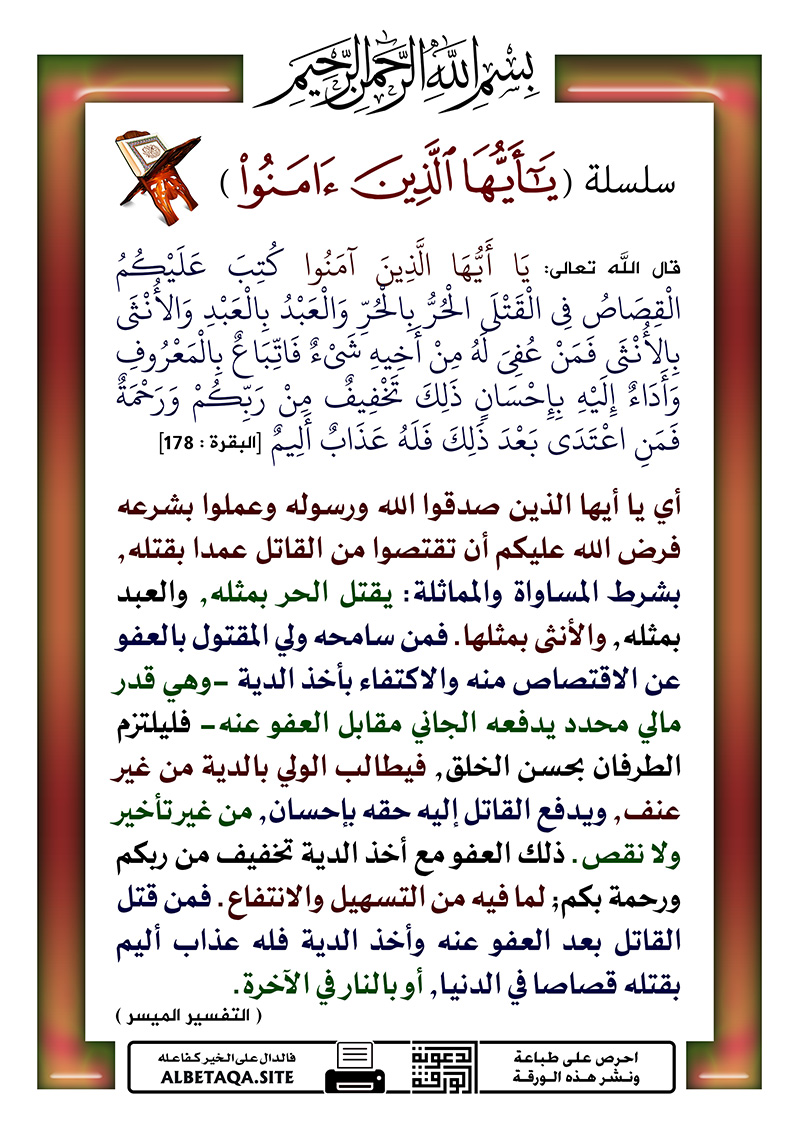 بِسْمِ اللَّهِ الرَّحْمَنِ الرَّحِيمِ
سلسلة (يَـٰٓأَيُّهَا ٱلَّذِينَ ءَامَنُوا۟)
قال الله تعالى: يَا أَيُّهَا الَّذِينَ آمَنُوا كُتِبَ عَلَيْكُمُ
الْقِصَاصُ فِي الْقَتْلَى الْحُرُّ بِالْحُرِّ وَالْعَبْدُ بِالْعَبْدِ وَالأُنْثَى
بِالأُنْثَى فَمَنْ عُفِيَ لَهُ مِنْ أَخِيهِ شَيْءٌ فَاتِّبَاعٌ بِالْمَعْرُوفِ
وَأَدَاءٌ إِلَيْهِ بِإِحْسَانٍ ذَلِكَ تَخْفِيفٌ مِنْ رَبِّكُمْ وَرَحْمَةٌ
فَمَنِ اعْتَدَى بَعْدَ ذَلِكَ فَلَهُ عَذَابٌ أَلِيمٌ [البقرة : 178]
أي يا أيها الذين صدقوا الله ورسوله وعملوا بشرعه
فرض الله عليكم أن تقتصوا من القاتل عمدا بقتله,
بشرط المساواة والمماثلة: يقتل الحر بمثله, والعبد
بمثله, والأنثى بمثلها. فمن سامحه ولي المقتول بالعفو
عن الاقتصاص منه والاكتفاء بأخذ الدية -وهي قدر
مالي محدد يدفعه الجاني مقابل العفو عنه- فليلتزم
الطرفان بحسن الخلق, فيطالب الولي بالدية من غير
عنف, ويدفع القاتل إليه حقه بإحسان, من غير تأخير
ولا نقص. ذلك العفو مع أخذ الدية تخفيف من ربكم
ورحمة بكم; لما فيه من التسهيل والانتفاع. فمن قتل
القاتل بعد العفو عنه وأخذ الدية فله عذاب أليم
بقتله قصاصا في الدنيا, أو بالنار في الآخرة.
( التفسير الميسر )
احرص على طباعة
ونشر هذه الورقة
الدعوية
الورقة
فالدال على الخير كفاعله
ALBETAQA.SITE